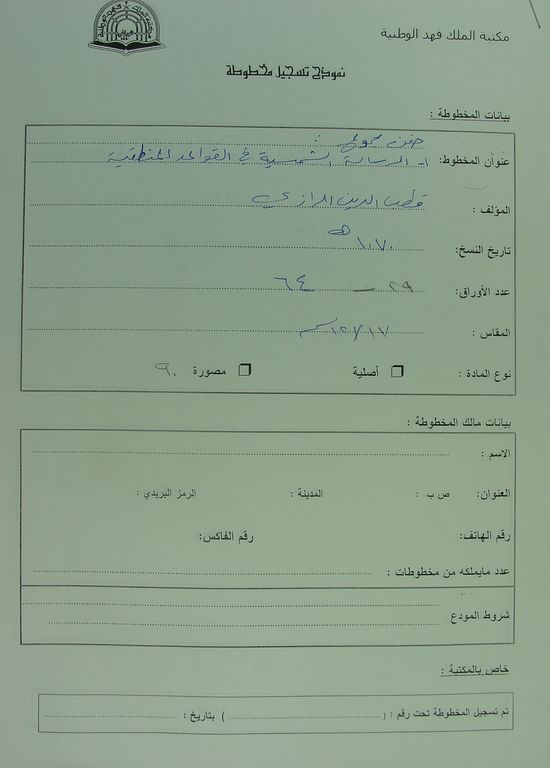 مكتبة الملك فهد الوطنية
نموذج تسجيل مخطوطة
بيانات المخطوطة :
ضمن مجموع :
عنوان المخطوط: ١- الرسالة الشمسية في القواعد المنطقية
المؤلف : قطب الدين الرازي
تاريخ النسخ: ١٠٧٠ هـ
عدد الأوراق: ٢٩ – ٦٤
المقاس : ١٢/١٧ سم
نوع المادة : أصلية مصورة ٩٠
بيانات مالك المخطوطة :
الاسم :
العنوان: ص ب : المدينة : الرمز البريدي :
رقم الهاتف: رقم الفاكس:
عدد مايملكه من مخطوطات :
شروط المودع
خاص بالمكتبة :
تم تسجيل المخطوطة تحت رقم : ( ) بتاريخ :